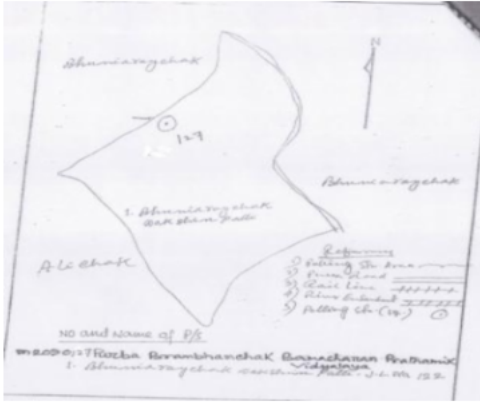 N
Bhuniaraychak
127
Bhuniaraychak
1. Bhuniaraychak
Alichak
References
1) Polling Stn Area
2) Pucca Road
3) Rail Line
4)
5) Polling Stn (127)
NO and Name of P/S
127 Purba Barambhanchak Bamacharan Prathamik
Vidyalaya
1. Bhuniaraychak Dakshin Palli - J.L No 122